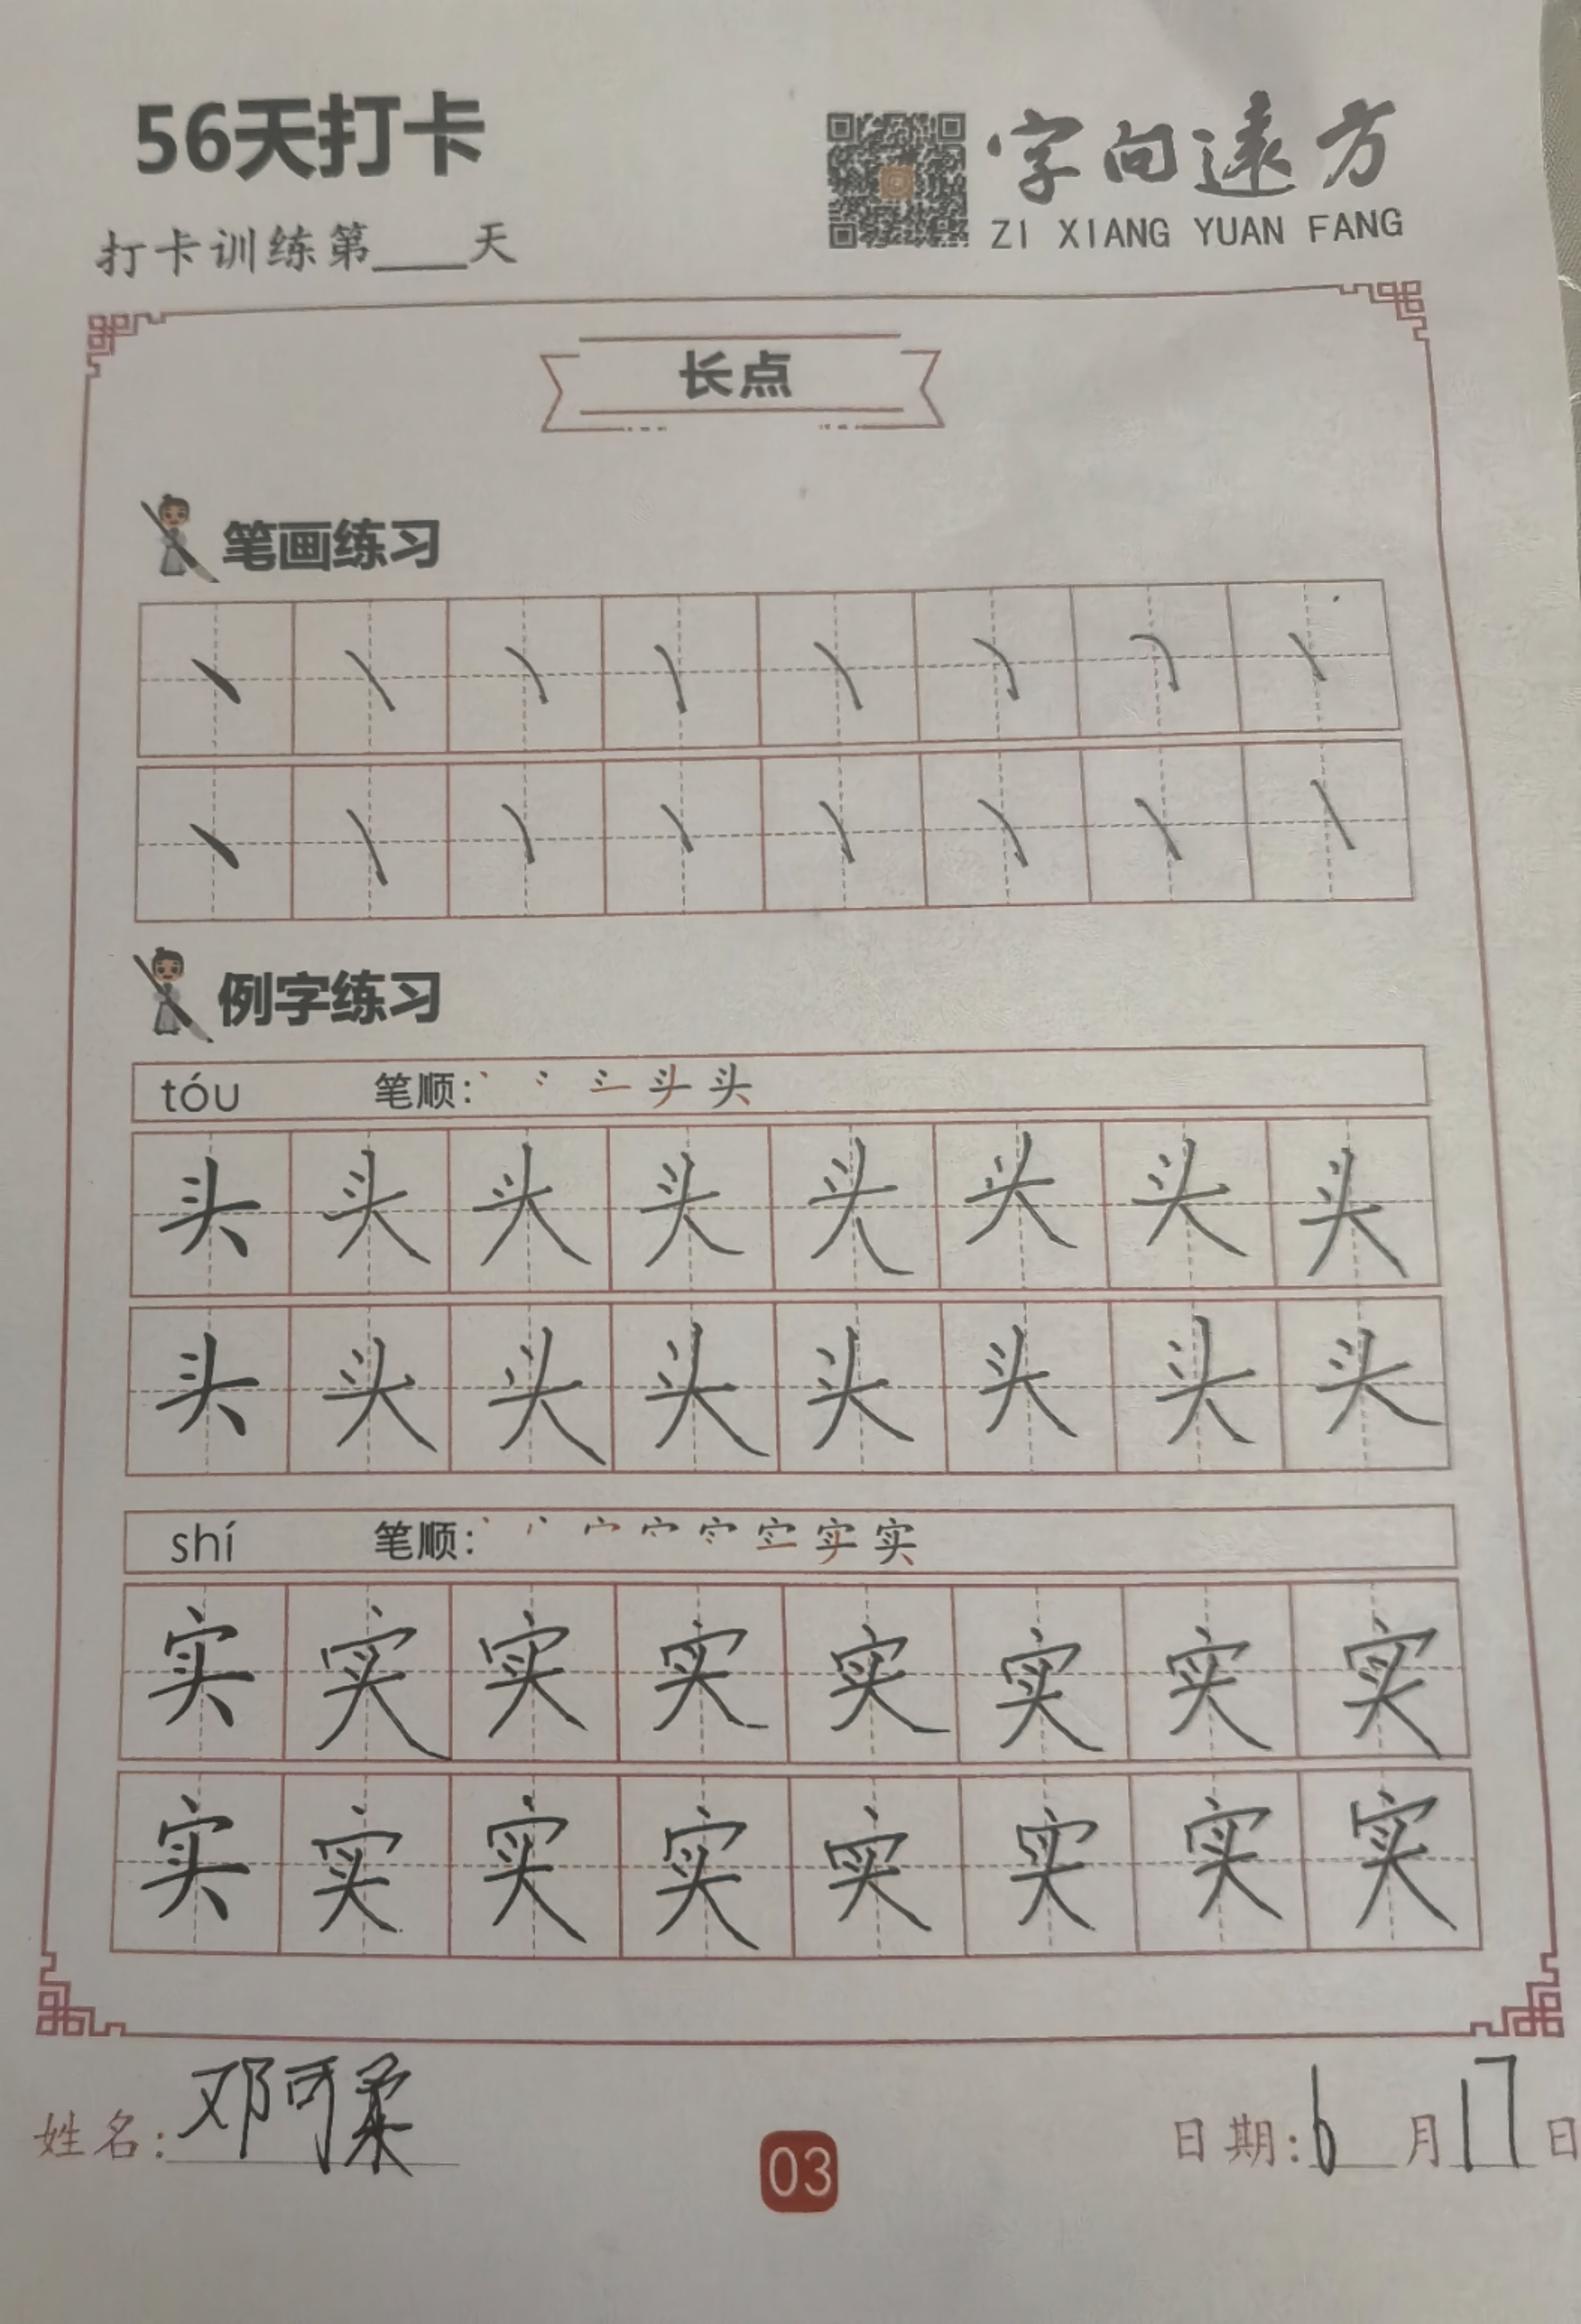 56天打卡
字向遠方
ZI XIANG YUAN FANG
打卡训练第____天
长点
笔画练习
丶 丶 丶 丶 丶 丶 丶 丶
丶 丶 丶 丶 丶 丶 丶 丶
例字练习
tóu 笔顺: 头
头 头 头 头 头 头 头 头
头 头 头 头 头 头 头 头
shí 笔顺: 实
实 实 实 实 实 实 实 实
实 实 实 实 实 实 实 实
姓名: 邓可柔
日期: 6月17日
03